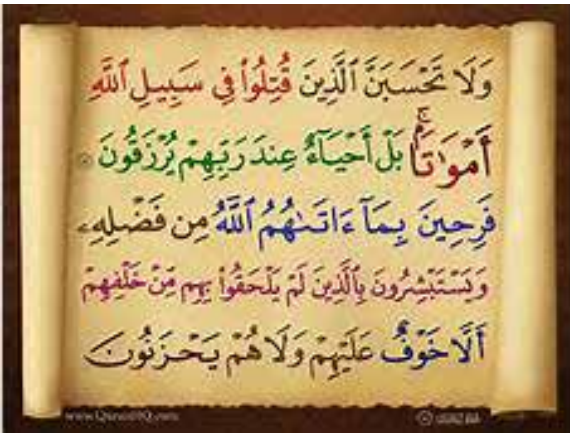 وَلَا تَحْسَبَنَّ ٱلَّذِينَ قُتِلُوا۟ فِى سَبِيلِ ٱللَّهِ
أَمْوَٰتًۢا ۚ بَلْ أَحْيَآءٌ عِندَ رَبِّهِمْ يُرْزَقُونَ
فَرِحِينَ بِمَآ ءَاتَىٰهُمُ ٱللَّهُ مِن فَضْلِهِۦ
وَيَسْتَبْشِرُونَ بِٱلَّذِينَ لَمْ يَلْحَقُوا۟ بِهِم مِّنْ خَلْفِهِمْ
أَلَّا خَوْفٌ عَلَيْهِمْ وَلَا هُمْ يَحْزَنُونَ